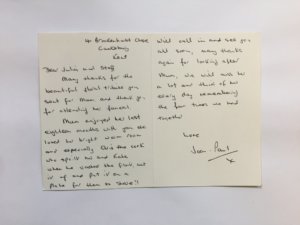 Close
Kent
Dear Julie and Staff
Many thanks for the
beautiful floral tribute you
sent for Mum and thank you
for attending her funeral.
Mum enjoyed her last
eighteen months with you she
loved her bright warm room
and especially the cook
who spoilt her and Kate
when he cooked the fish, cut
it up and put it on a
plate for them to share!!
Will call in and see you
all soon, many thanks
again for looking after
Mum, we will miss her
a lot and think of her
every day remembering
the fun times we had
together
Love
Jean-Paul
x